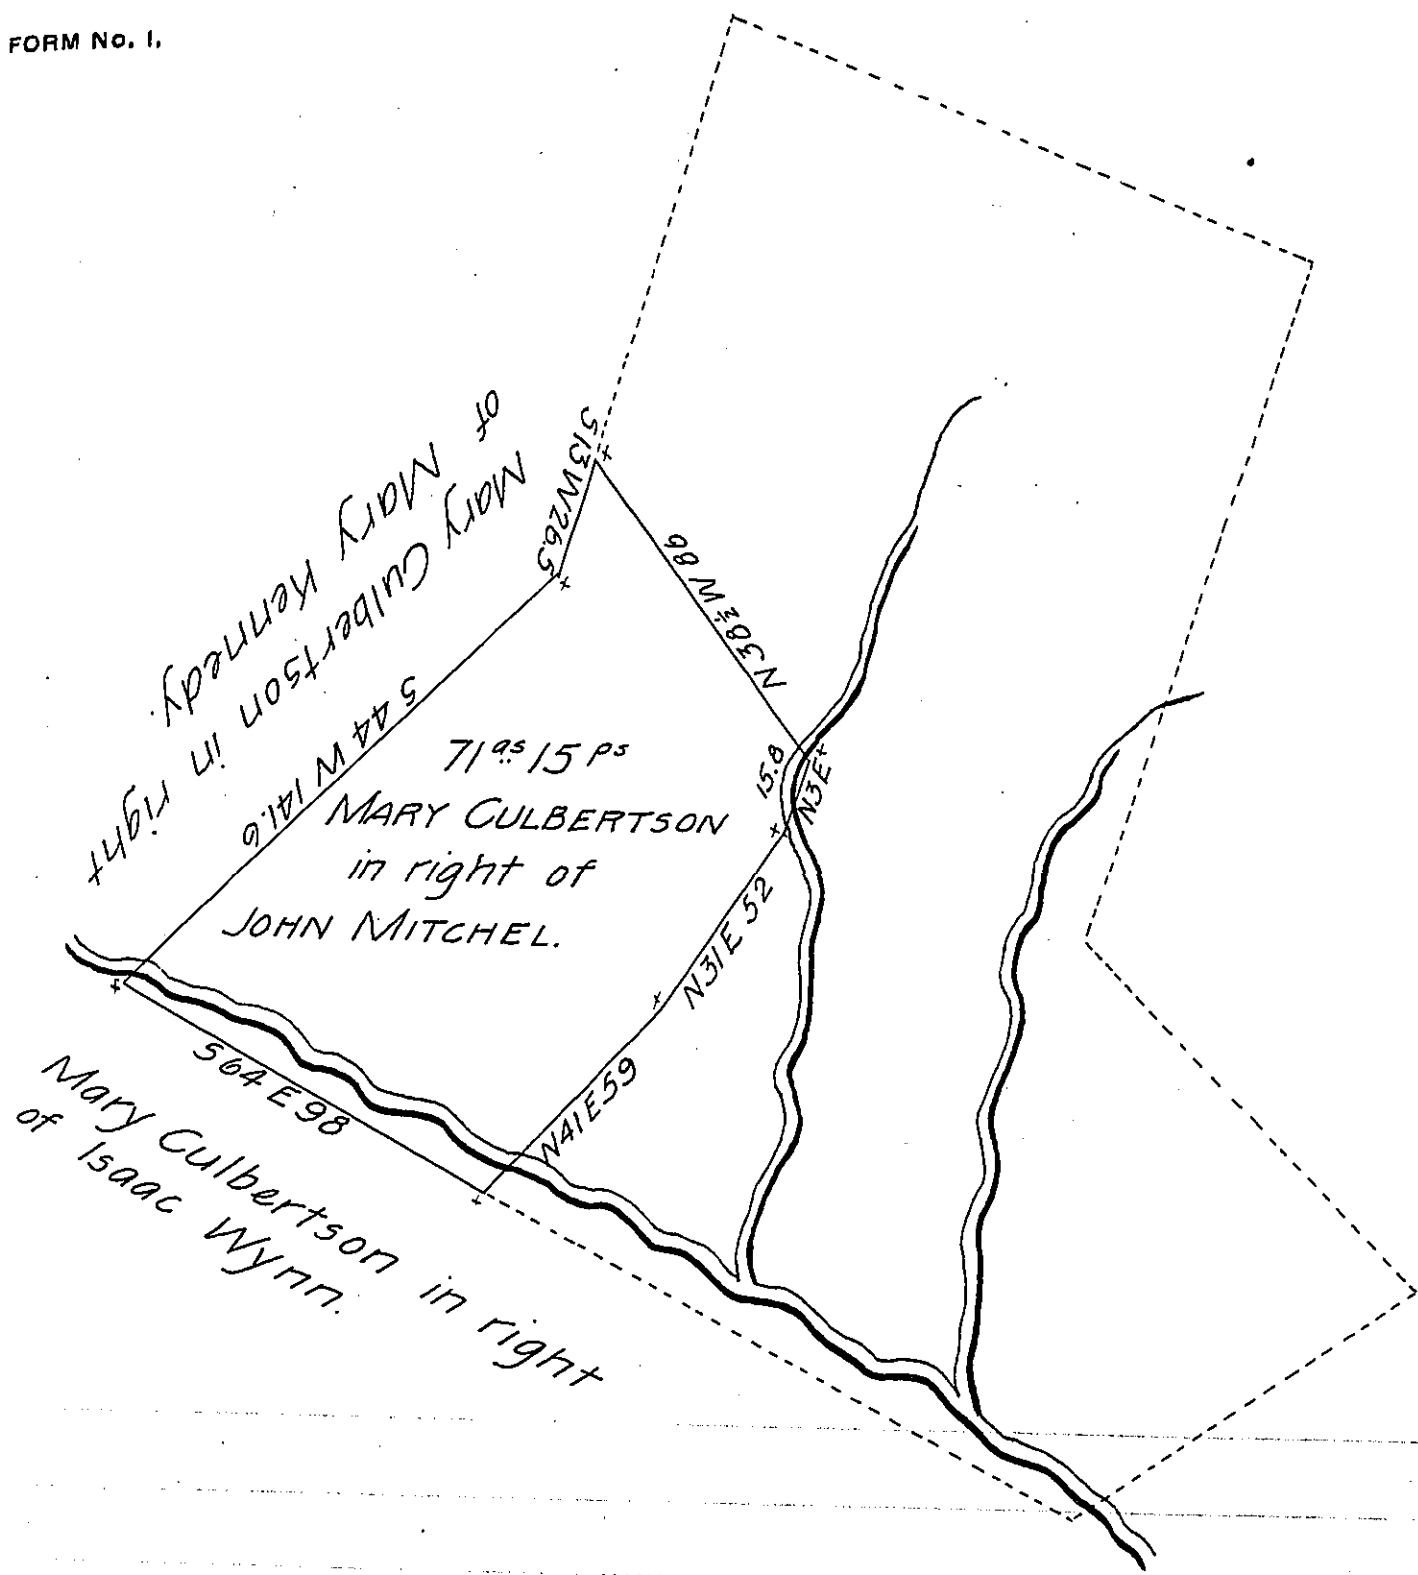 FORM No. 1.
S 13 W 26.5
N 38½ W 86
Mary Culbertson in right
of Mary Kennedy.
S 44 W 141.6
71 as 15 ps
MARY CULBERTSON
in right of
JOHN MITCHEL.
15.8
N 3 E
N 31 E 52
N 41 E 59
S 64 E 98
Mary Culbertson in right
of Isaac Wynn.